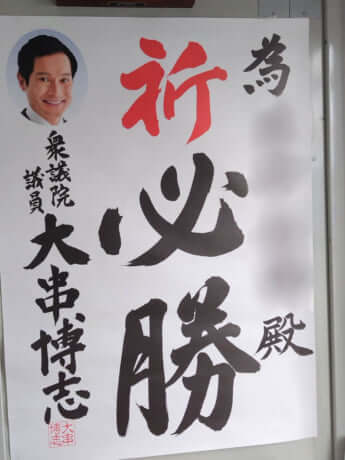 為
殿
祈
必勝
衆議院
議員
大串博志
大串
博志